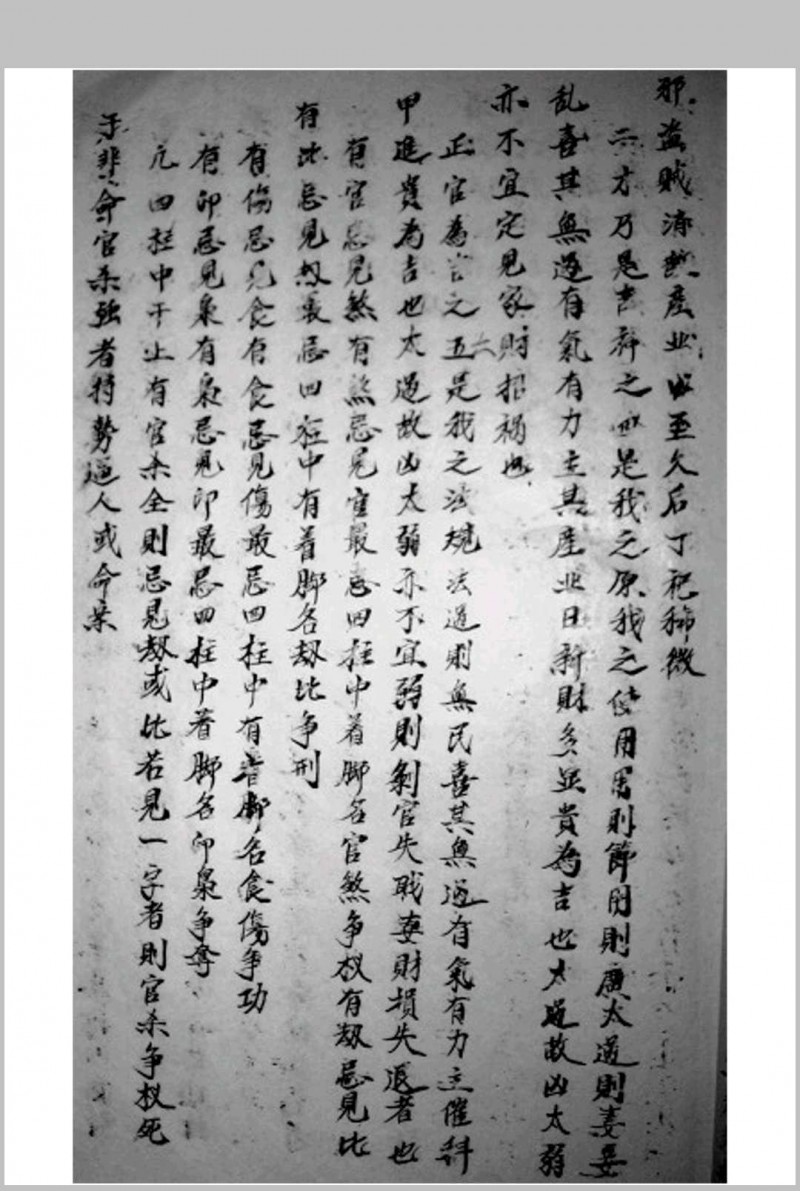 邪盗贼清𢙣產业由至久后丁祀稀微
六才乃是吉神之四是我之原我之使用用則節用則廣太過則妻妾
乱喜其無過有氣有力主其產业日新財多显貴為吉也太過故凶太弱
亦不宜定見家財招禍也
正官為吉之五是我之法規法過則無民喜其無過有氣有力主催科
甲進貴為吉也太過故凶太弱亦不宜弱則剝官失职妻財損失退者也
有官忌見煞有煞忌見官最忌四柱中着脚名官煞争权有刼忌見比
有比忌見刼最忌四柱中有着脚名刼比争刑
有傷忌見食有食忌見傷最忌四柱中有着脚名食傷争功
有印忌見枭有枭忌見印最忌四柱中着脚名印枭争奪
凢四柱中干止有官杀全則忌見刼或比若見一字者則官杀争权死
于非命官杀强者持勢逼人或命案